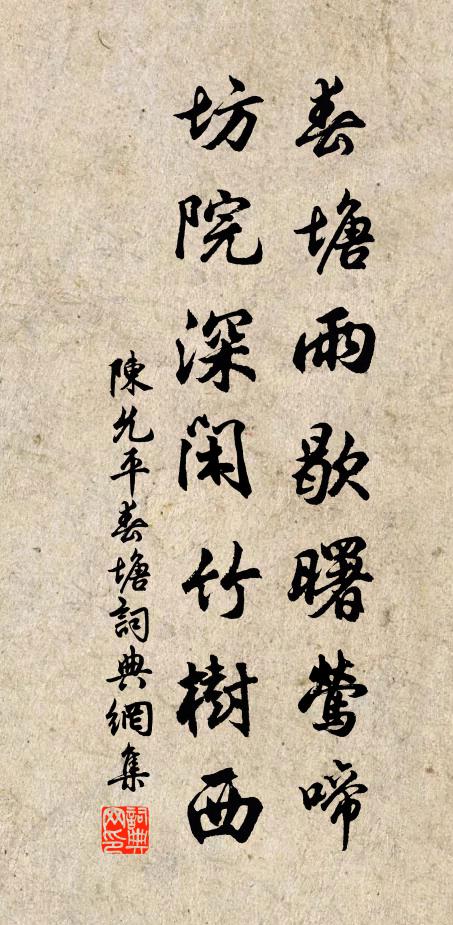 春塘雨歇曙鶯啼
坊院深閑竹樹西
陳允平春塘詞典網集
詞典網印